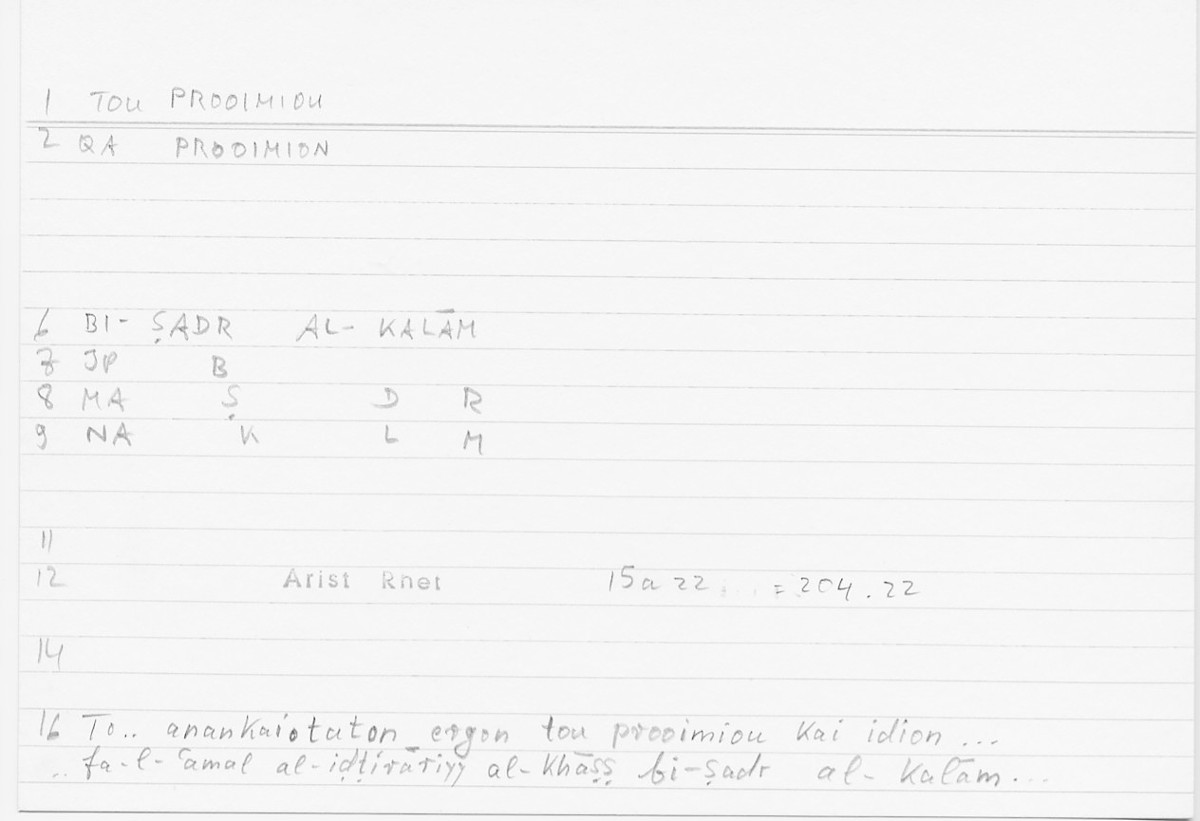 1 TOU PROOIMIOU
2 QA PROOIMION
6 BI- ṢADR AL- KALĀM
7 JP B
8 MA Ṣ D R
9 NA K L M
11
12 Arist Rhet 15a22 = 204.22
14
16 To.. anankaiotaton ergon tou prooimiou kai idion ...
.. fa-l-ʿamal al-iḍṭirāriyy al-khāṣṣ bi-ṣadr al-kalām...